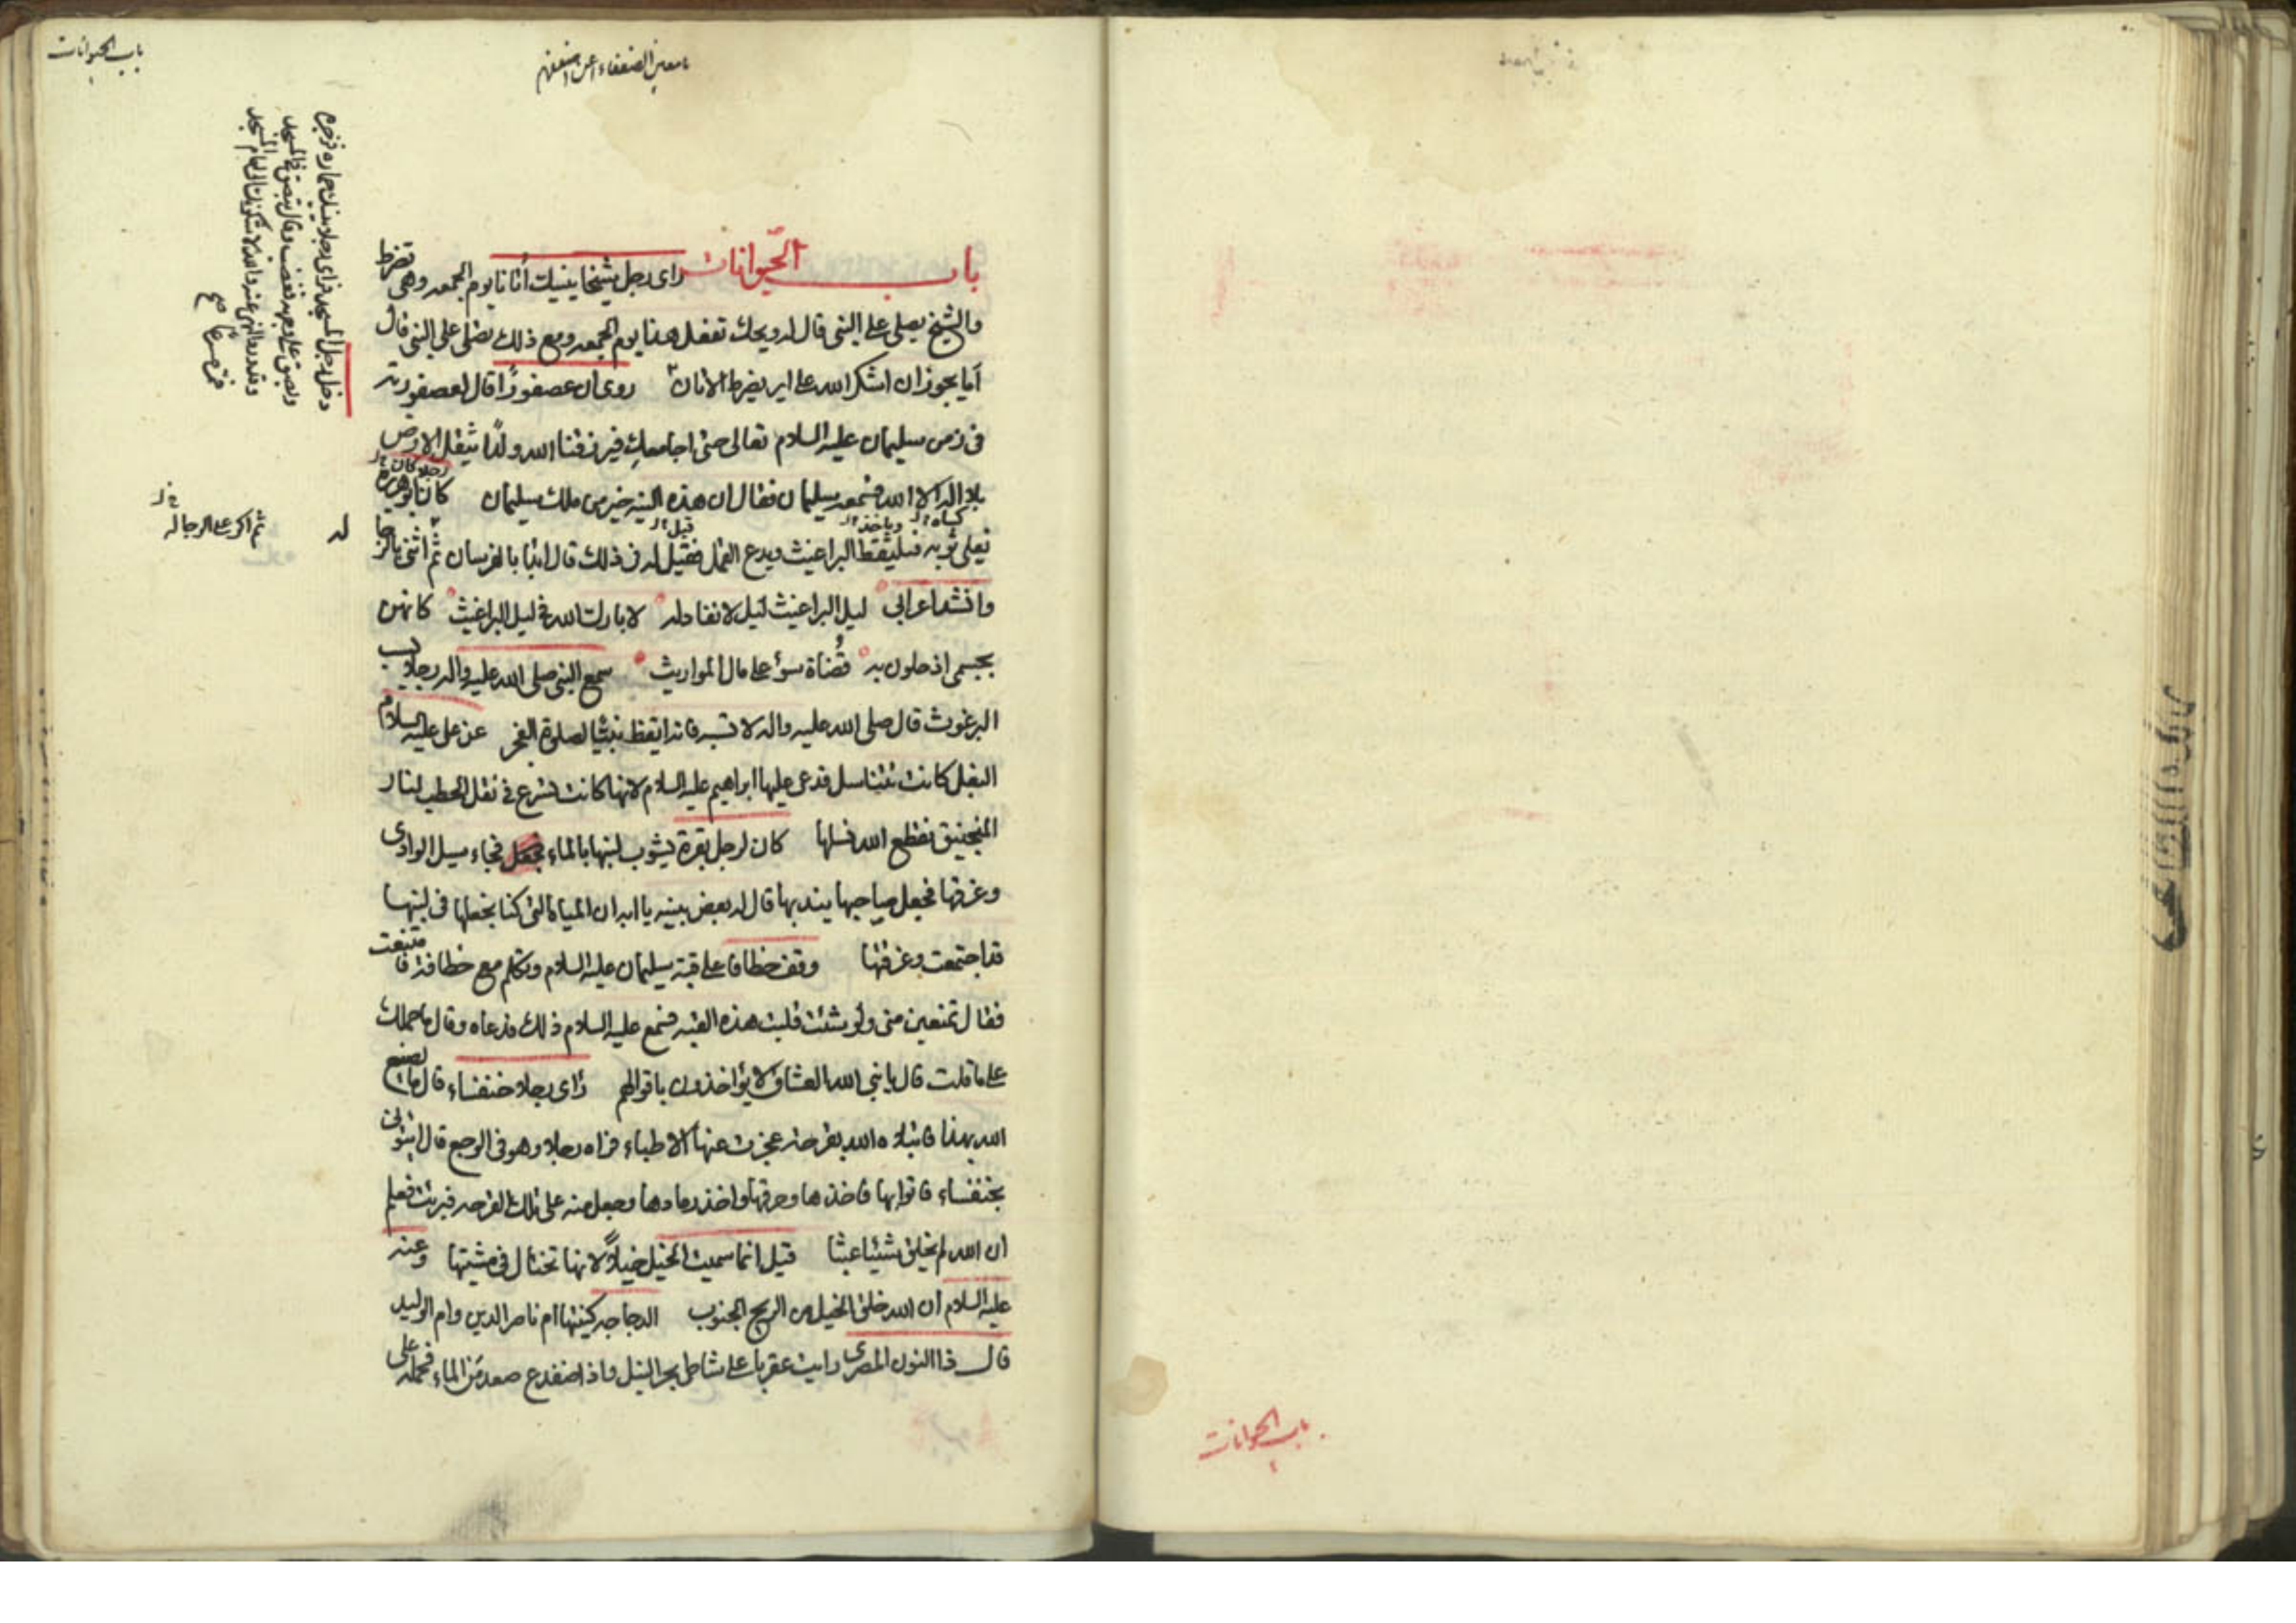 باب الحيوانات
يا معين الضعفاء اعن اضعفهم
باب الحيوانات راى رجل شيخا ينيك أتانا يوم الجمعه وهى تضرط
والشيخ يصلى على النبى قال له ويحك تفعل هذا يوم الجمعه ومع ذلك تصلى على النبى قال
أما يجوز ان اشكر الله على اير يضرط الاتان روى ان عصفورًا قال لعصفورته
فى زمن سليمان عليه السلام تعالى حتى اجامعك فيرزقنا الله ولدًا يثقل الارض
بلا اله الا الله فسمعه سليمان فقال ان هذه النيه خير من ملك سليمان كان ابو هريرة
رجلا كان
يفلى ثوبه فيلتقط البراغيث ويدع القمل فقيل له فى ذلك قال ابدا بالفرسان ثم اثنى بالرجا
كساه وياخذ قيل
له
ثم اكر على الرجاله
وانشد اعرابى ليل البراغيث ليل لا نفاد له لا بارك الله فى ليل البراغيث كانهن
بجسمى اذ خلون به قُضاة سوء على مال المواريث سمع النبى صلى الله عليه واله رجلا يسب
البرغوث قال صلى الله عليه واله لا تسبه فانه ايقظ نبيًا لصلوة الفجر عن على عليه السلام
البغل كانت تتناسل فدعى عليها ابراهيم عليه السلام لانها كانت تسرع فى نقل الحطب لنار
المنجنيق فقطع الله نسلها كان لرجل بقرة يشوب لبنها بالماء فجعل فجاء سيل الوادى
وغرقها فجعل صاحبها يندبها قال له بعض بنيه يا ابه ان المياه التى كنا نجعلها فى لبنها
قد اجتمعت وغرقتها وقف خطاف على قبة سليمان عليه السلام وتكلم مع خطافة فامتنعت
فقال تمنعين منى ولو شئت قلبت هذه القبه فسمع عليه السلام ذلك فدعاه وقال ما حملك
على ما قلت قال يا نبى الله العشاق لا يؤاخذون باقوالهم رأى رجلا خنفساء قال ما يصنع
الله بهذا فابتلاه الله بقرحة عجزت عنها الاطباء فراه رجلا وهو فى الوجع قال ايتونى
بخنفساء فاتوا بها فاخذها وحرقها واخذ رمادها وجعل منه على تلك القرحه فبرئت فعلم
ان الله لم يخلق شيئا عبثا قيل انما سميت الخيل خيلاً لانها تختال فى مشيتها وعنه
عليه السلام ان الله خلق الخيل من الريح الجنوب الدجاجه كنيتها ام ناصر الدين وام الوليد
قال ذا النون المصرى رايت عقربا على شاطى بحر النيل واذا ضفدع صعد من الماء فحمله على
دخل رجل المسجد فراى رجلا ينيك حماره فزجره
وبصق على وجهه فغضب وقال تبصق فى المسجد
والله لاشكونك الى امام المسجد
باب الحيوانات